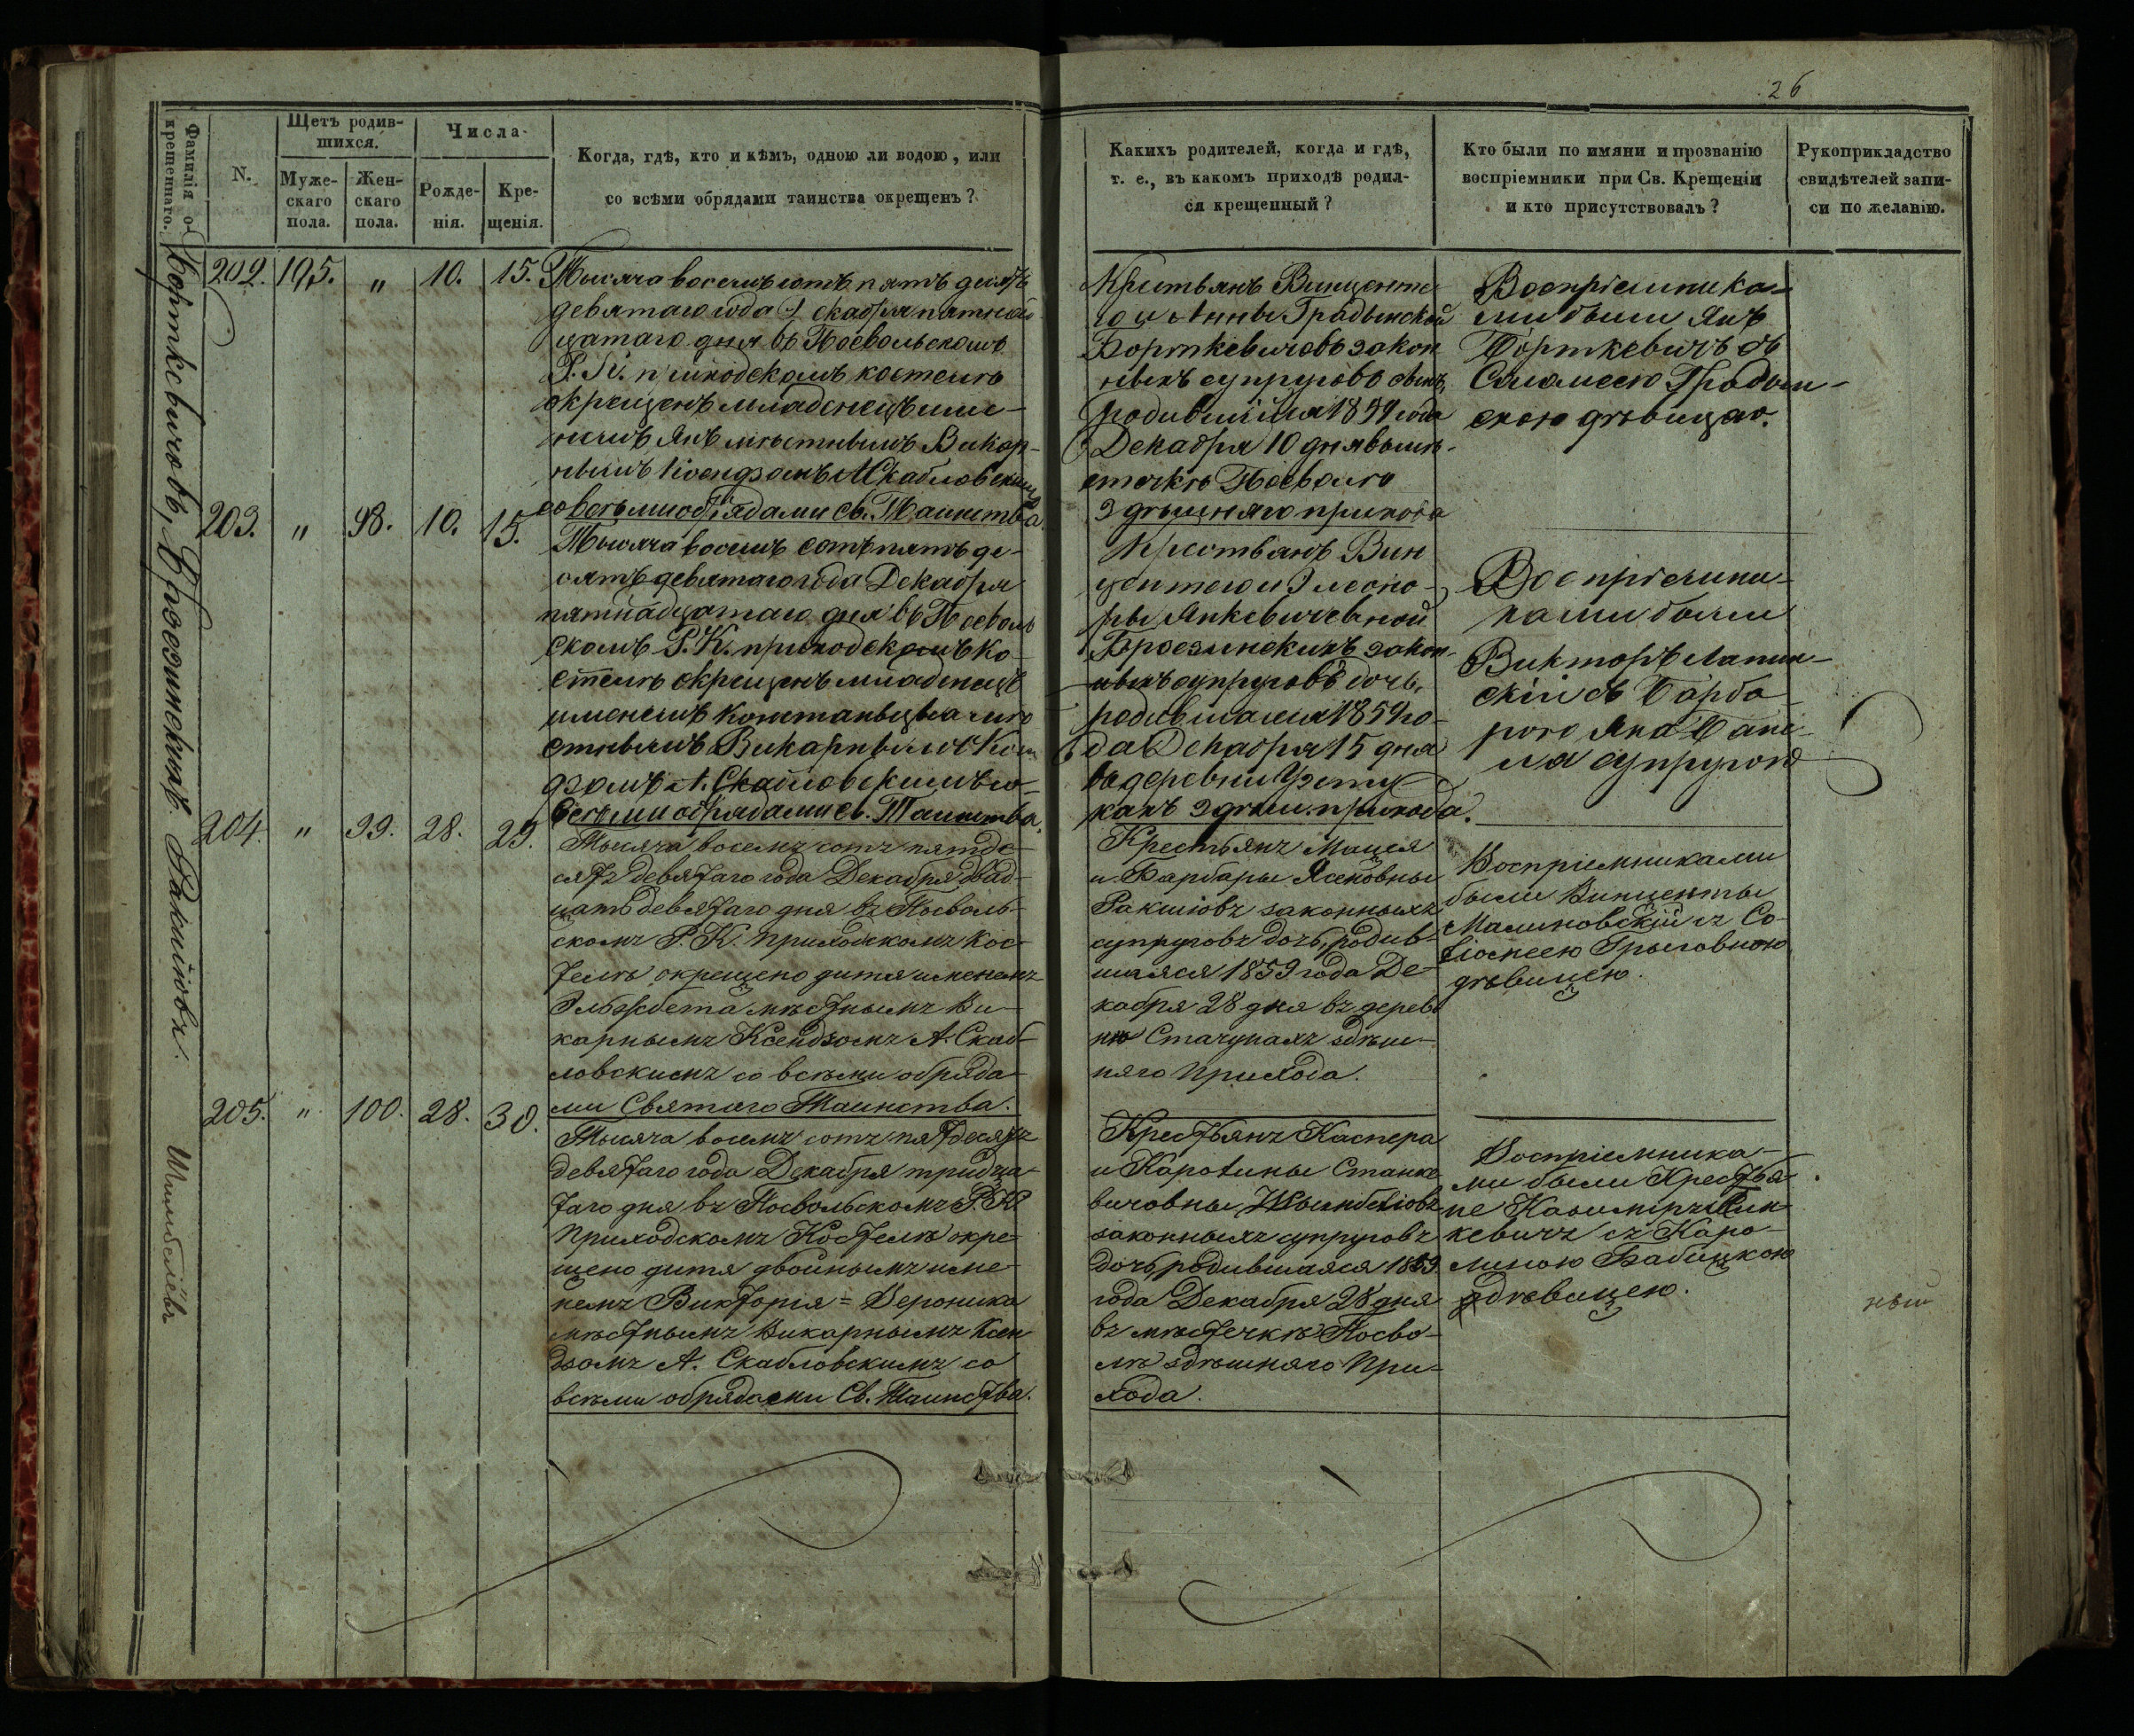 26
Фамилія о-
крещеннаго.
N.
Щетъ родив-
шихся.
Муже-
скаго
пола.
Жен-
скаго
пола.
Числа
Рожде-
нія.
Кре-
щенія.
Когда, гдѣ, кто и кѣмъ, одною ли водою, или
со всѣми обрядами таинства окрещенъ?
Какихъ родителей, когда и гдѣ,
т. е., въ какомъ приходѣ родил-
ся крещенный?
Кто были по имяни и прозванію
воспріемники при Св. Крещеніи
и кто присутствовалъ?
Рукоприкладство
свидѣтелей запи-
си по желанію.
Борткевичовъ,
202. 105. " 10. 15.
Тысяча восемь сотъ пять десятъ
девятаго года Декабря пятнад-
цатаго дня въ Посвольскомъ
Р. К. приходскомъ костелѣ
окрещенъ младенецъ име-
немъ Янъ мѣстнымъ Викар-
нымъ Ксендзомъ А Скабловскимъ
со всѣми обрядами Св. Таинства
Крестьянъ Винценте-
го и Анны Градынской
Борткевичовъ закон-
ныхъ супруговъ сынъ,
родившійся 1859 года
Декабря 10 дня въ мѣ-
стечкѣ Посволѣ
здѣшняго прихода
Воспріемника-
ми были Янъ
Борткевичъ съ
Саломеею Градын-
скою дѣвицею.
Броезинскихъ.
203. " 98. 10. 15.
Тысяча восемь сотъ пять де-
сятъ девятаго года Декабря
пятнадцатаго дня въ Посволь
скомъ Р. К. приходскомъ ко-
стелѣ окрещенъ младенецъ
именемъ Констанъція мѣ-
стнымъ Викарнымъ Ксен
дзомъ А. Скабловскимъ со
всѣми обрядами Св. Таинства.
Крестьянъ Вин
центего и Элеоно-
ры Янкевичевной
Броезинскихъ закон-
ныхъ супруговъ дочь,
родившаяся 1859 го-
да Декабря 15 дня
въ деревни
кахъ здѣш. прихода.
Воспріемни-
ками были
Викторъ Лапин-
скій съ Барба-
рою Яна Дани-
ла супругою
Ракшіовъ.
204. " 99. 28. 29.
Тысяча восемь сотъ пятьде-
сятъ девятаго года Декабря двад-
цать девятаго дня въ Посволь-
скомъ Р. К. приходскомъ Кос-
телѣ окрещено дитя именемъ
Эльжбета мѣстнымъ Ви-
карнымъ Ксендзомъ А. Скаб-
ловскимъ со всѣми обряда-
ми Святаго Таинства.
Крестьянъ Мацея
и Барбары Ясеновны
Ракшіовъ законныхъ
супруговъ дочь, родив-
шаяся 1859 года Де-
кабря 28 дня въ дерев-
нѣ Стачунахъ здѣш-
няго прихода.
Воспріемниками
были Винценты
Малиновскій съ Са-
ломеею Грыговною
дѣвицею.
Шимбелёвъ
205. " 100. 28. 30.
Тысяча восемь сотъ пятдесятъ
девятаго года Декабря тридца-
таго дня въ Посвольскомъ Р. К.
приходскомъ Костелѣ окре-
щено дитя двойнымъ име-
немъ Викторія=Вероника
мѣстнымъ Викарнымъ Ксен
дзомъ А. Скабловскимъ со
всѣми обрядами Св. Таинства.
Крестьянъ Каспера
и Каролины Станке-
вичовны Шымбеліовъ
законныхъ супруговъ
дочь, родившаяся 1859
года Декабря 28 дня
въ мѣстечкѣ Посво-
лѣ здѣшняго при-
хода.
Воспріемника-
ми были Крестья-
не Казиміръ
кевичъ съ Каро-
линою Бабицкою
дѣвицею.